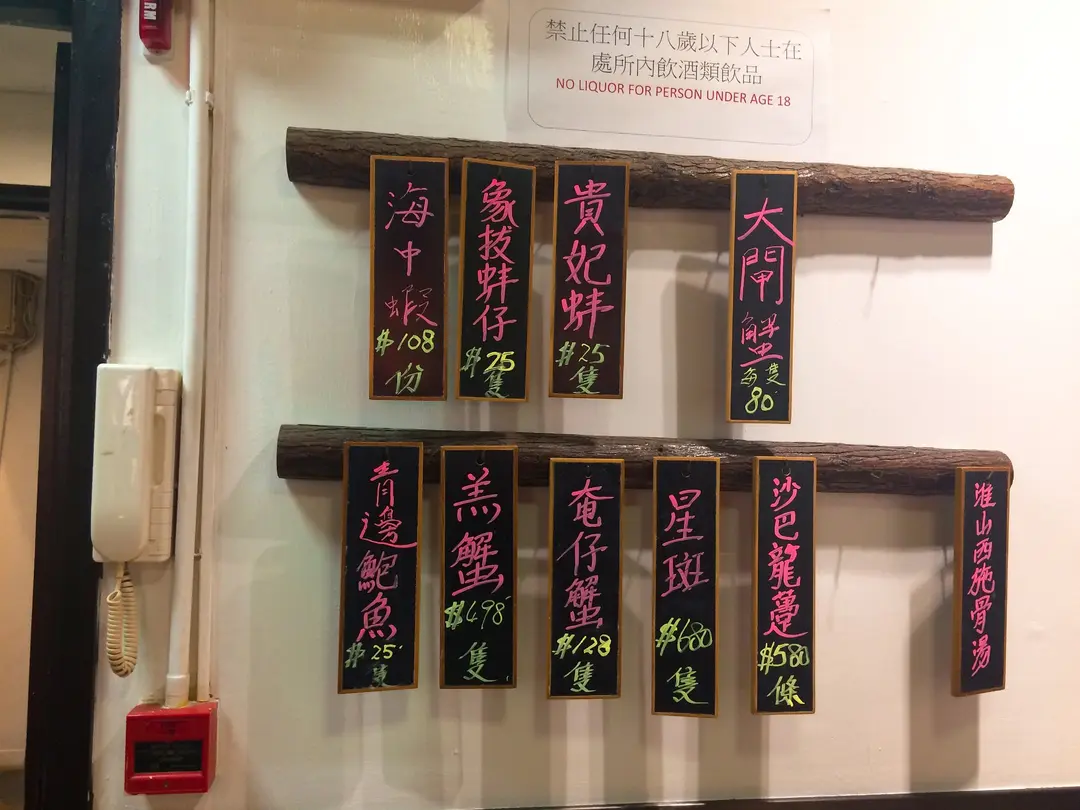 禁止任何十八歲以下人士在
處所內飲酒類飲品
NO LIQUOR FOR PERSON UNDER AGE 18
海中蝦
$108
份
象拔蚌仔
$25
隻
貴妃蚌
$25
隻
大閘蟹
每隻
80
青邊鮑魚
$25
隻
羔蟹
$498
隻
奄仔蟹
$128
隻
星斑
$680
隻
沙巴龍躉
$580
條
淮山西施骨湯